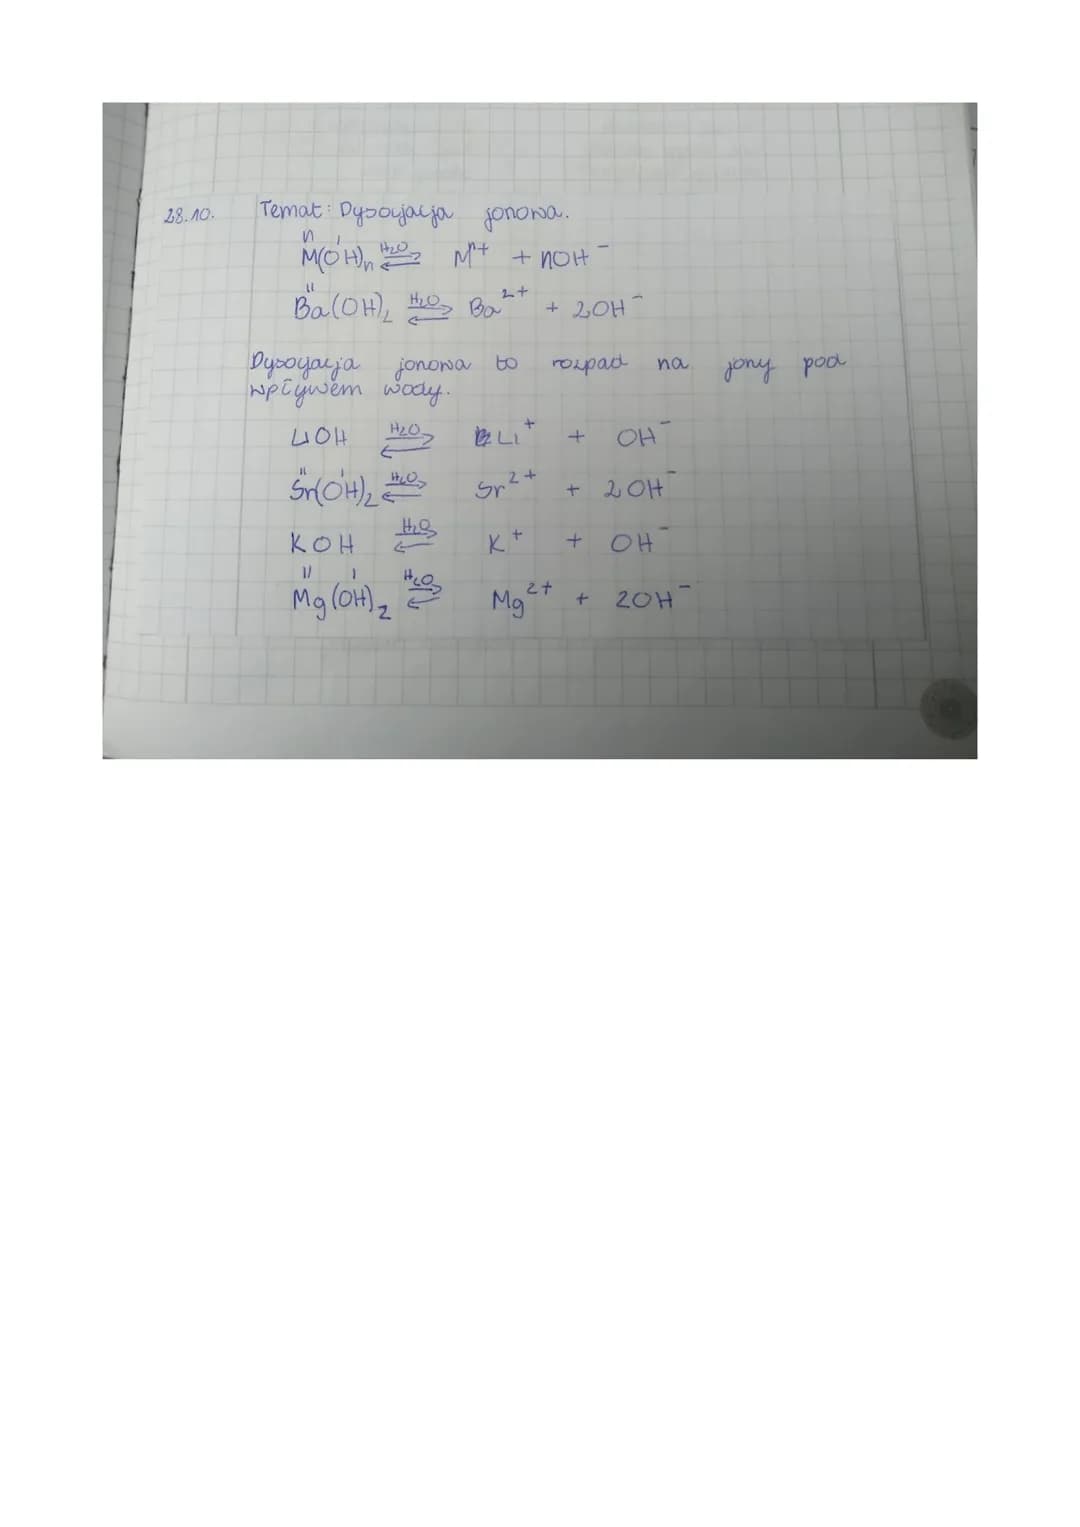 28.10. Temat: Dysocjacja jonowa.
n I
M(OH)n H2O ⇌ Mⁿ⁺ + nOH⁻
II
Ba(OH)₂ H₂O ⇌ Ba²⁺ + 2OH⁻
Dysocjacja jonowa to rozpad na jony pod
wpływem wody.
LiOH H₂O ⇌ Li⁺ + OH⁻
II I
Sr(OH)₂ H₂O ⇌ Sr²⁺ + 2OH⁻
KOH H₂O ⇌ K⁺ + OH⁻
II I
Mg(OH)₂ H₂O ⇌ Mg²⁺ + 2OH⁻